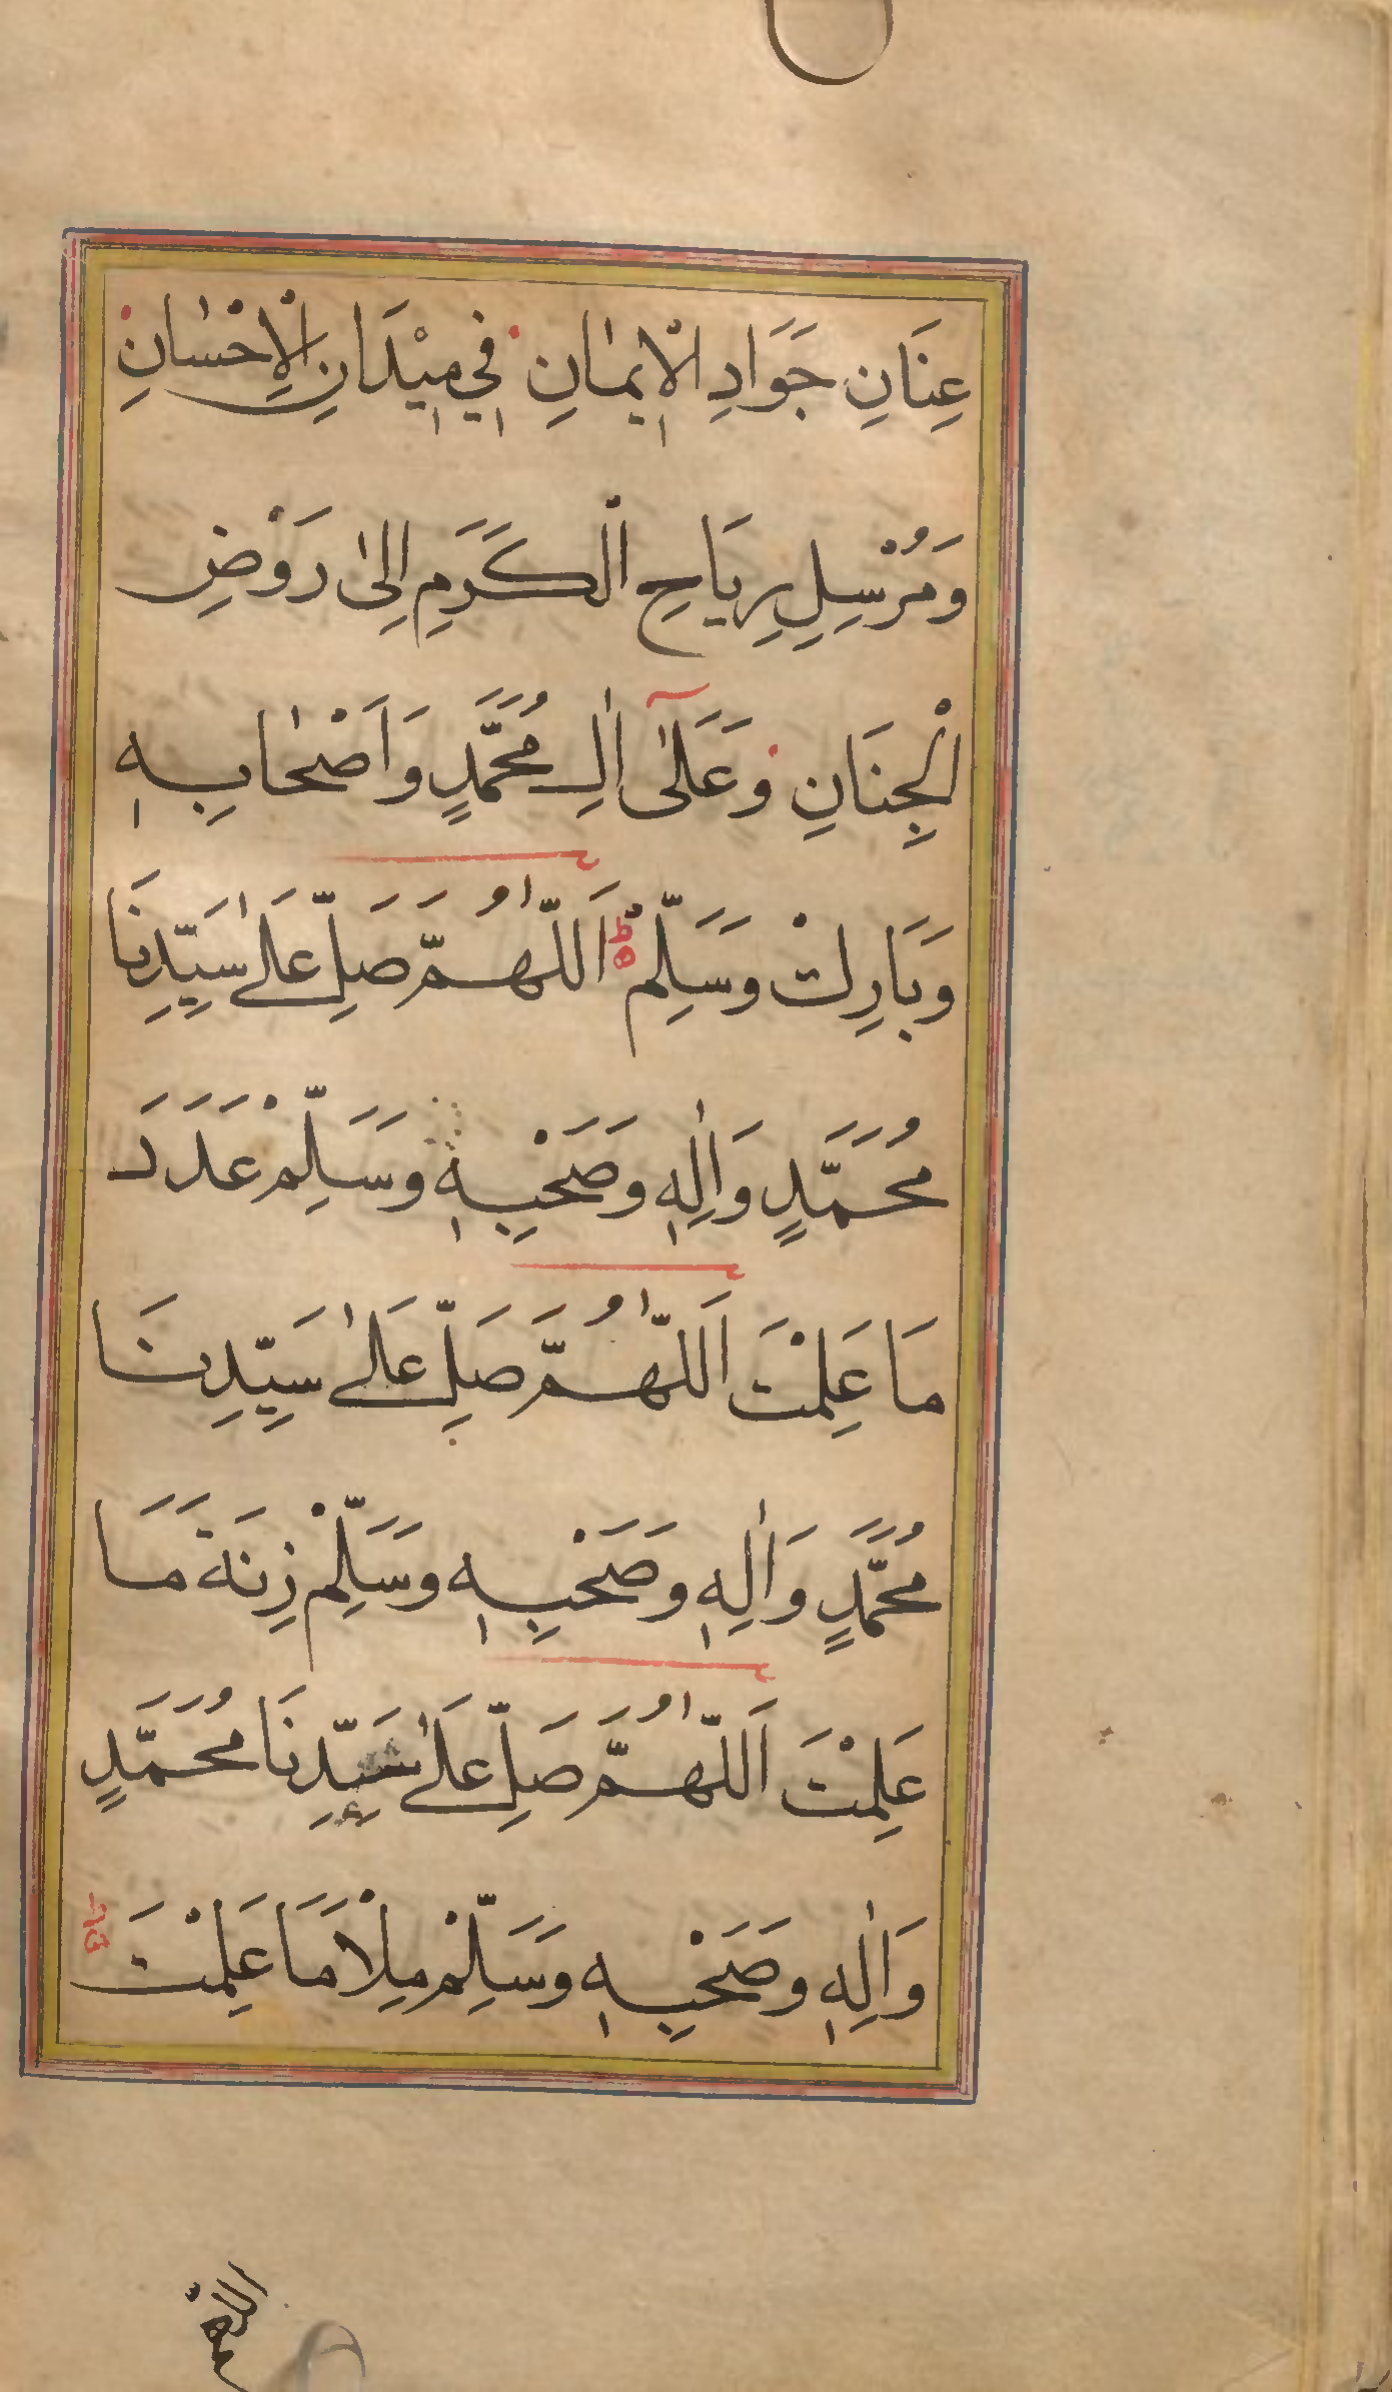 عِنَانِ جَوَادِ الْاِيمٰانِ فِي مِيْدَانِ الْاِحْسٰانِ
وَمُرْسِلِ رِيَاحِ الْكَرَمِ اِلىٰ رَوْضِ
الْجِنَانِ وَعَلىٰٓ اٰلِ مُحَمَّدٍ وَاَصْحٰابِهٖ
وَبَارِكْ وَسَلِّمْ ط ٥ اَللّٰهُمَّ صَلِّ عَلىٰ سَيِّدِنَا
مُحَمَّدٍ وَاٰلِهٖ وَصَحْبِهٖ وَسَلِّمْ عَدَدَ
مَا عَلِمْتَ اَللّٰهُمَّ صَلِّ عَلىٰ سَيِّدِنَا
مُحَمَّدٍ وَاٰلِهٖ وَصَحْبِهٖ وَسَلِّمْ زِنَةَ مَا
عَلِمْتَ اَللّٰهُمَّ صَلِّ عَلىٰ سَيِّدِنَا مُحَمَّدٍ
وَاٰلِهٖ وَصَحْبِهٖ وَسَلِّمْ مِلْاَ مَا عَلِمْتَ
اللهم